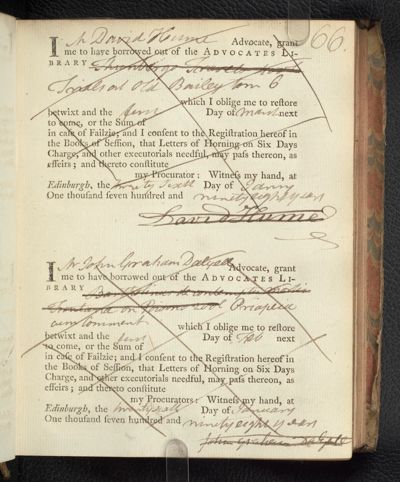 66.
I Mr David Hume Advocate, grant
me to have borrowed out of the ADVOCATES LI-
BRARY
Tryals at Old Bailey tom 6
which I oblige me to restore
betwixt and the first Day of March next
to come, or the Sum of
in case of Failzie; and I consent to the Registration hereof in
the Books of Session, that Letters of Horning on Six Days
Charge, and other executorials needful, may pass thereon, as
effeirs; and thereto constitute
my Procurator: Witness my hand, at
Edinburgh, the twenty Sixth Day of Janry
One thousand seven hundred and ninety eight years
David Hume
I Mr John Graham Dalyell Advocate, grant
me to have borrowed out of the ADVOCATES LI-
BRARY
Priapeia
cum Comment which I oblige me to restore
betwixt and the first Day of Feb next
to come, or the Sum of
in case of Failzie; and I consent to the Registration hereof in
the Books of Session, that Letters of Horning on Six Days
Charge, and other executorials needful, may pass thereon, as
effeirs; and thereto constitute
my Procurators: Witness my hand, at
Edinburgh, the Day of January
One thousand seven hundred and ninety eight years
John Graham Dalyell